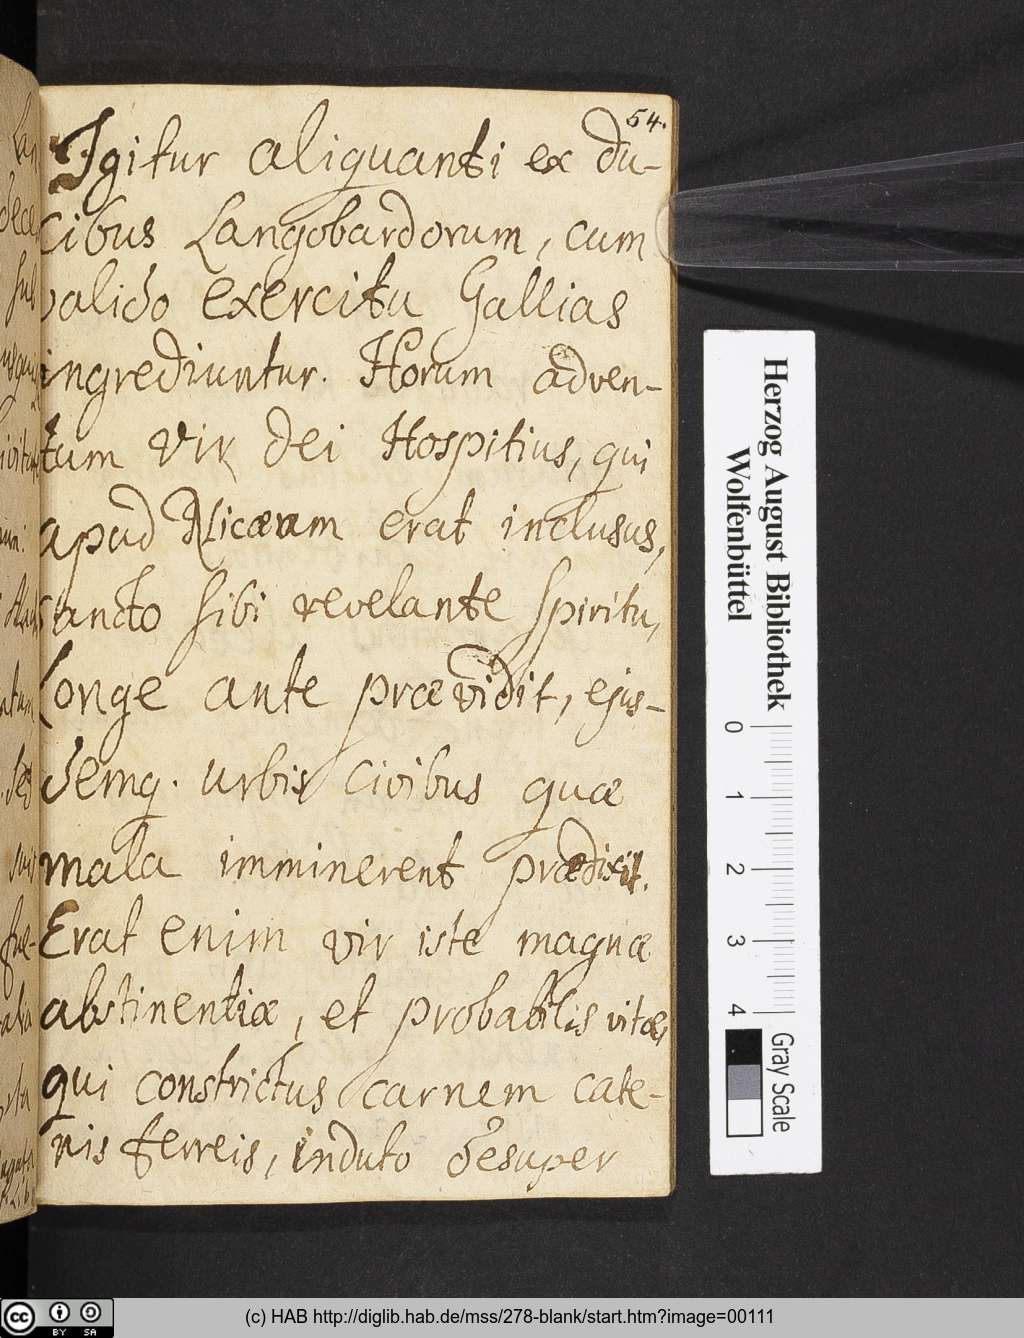 54.
Igitur aliquanti ex du-
cibus Langobardorum, cum
valido exercitu Gallias
ingrediuntur. Horum adven-
tum vir Dei Hospitius, qui
apud Nicæam erat inclusus,
sancto sibi revelante spiritu,
longe ante prævidit, ejus-
demq. urbis civibus quæ
mala imminerent prædixit.
Erat enim vir iste magnæ
abstinentiæ, et probabilis vitæ,
qui constrictus carnem cate-
nis ferreis, induto desuper
Herzog August Bibliothek
Wolfenbüttel
0 1 2 3 4
Gray Scale
cc BY SA
(c) HAB http://diglib.hab.de/mss/278-blank/start.htm?image=00111